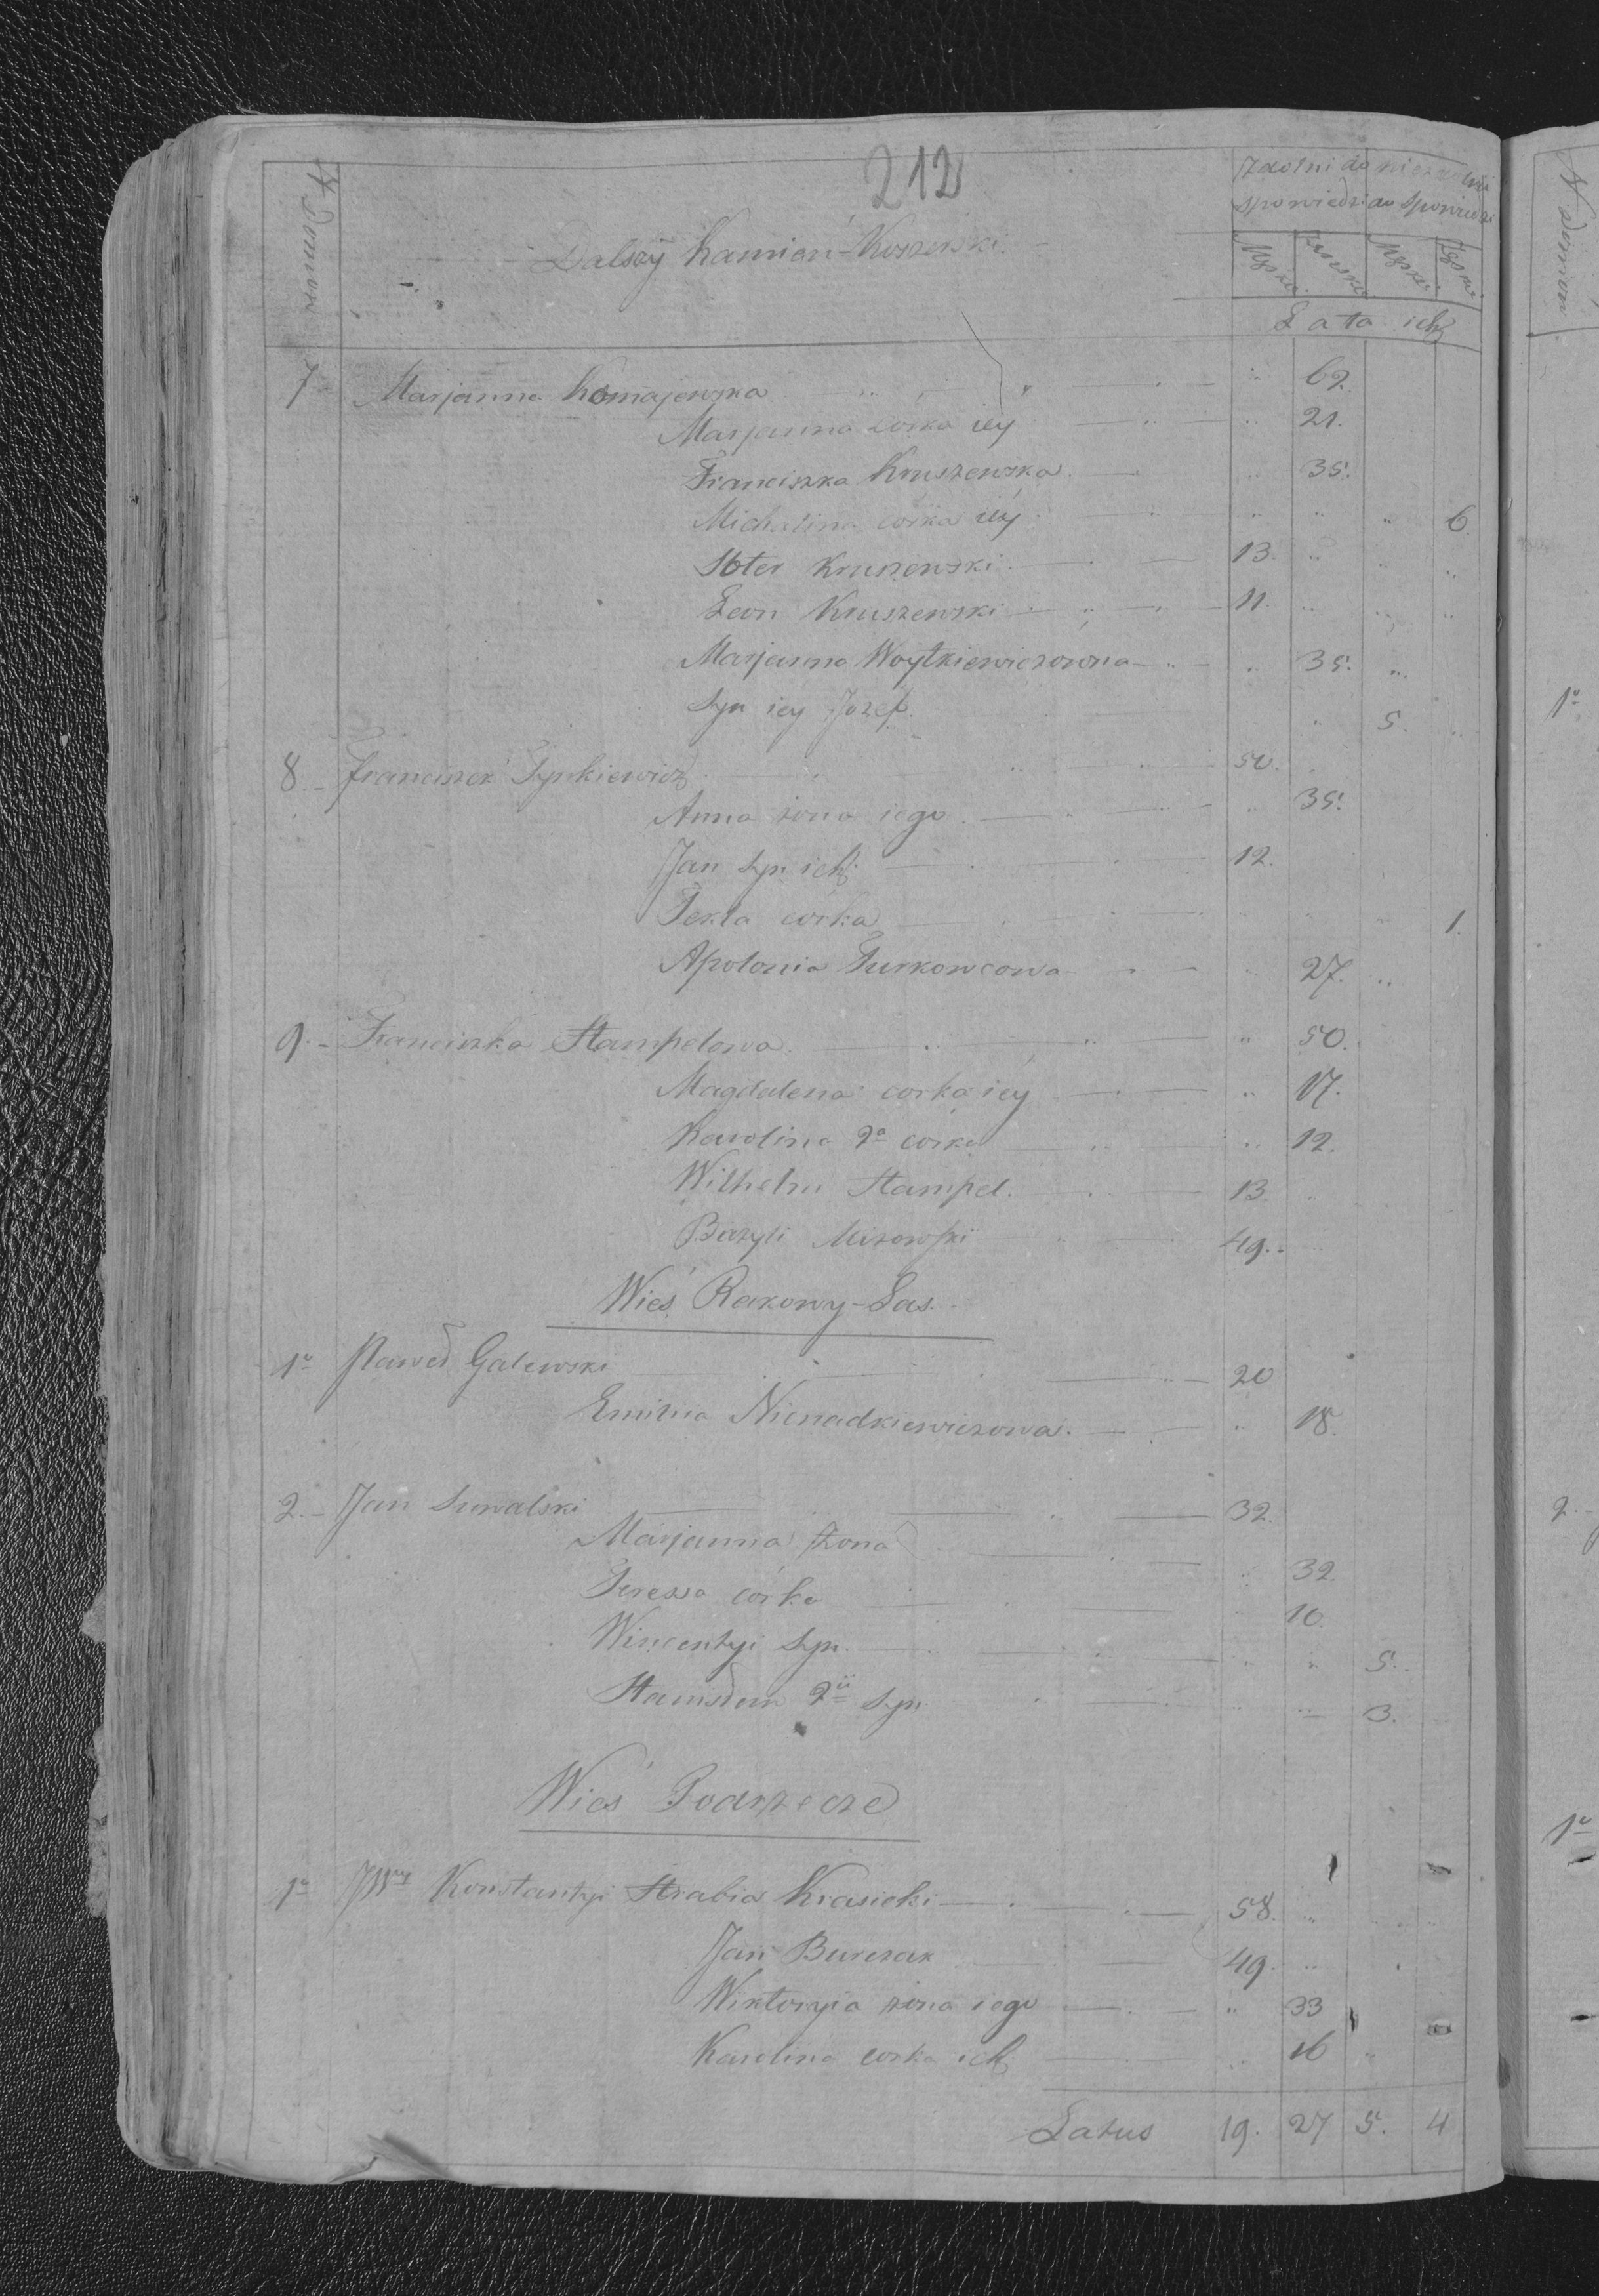 212
N Domow
Zdolni do spowiedzi niezdolni do spowiedzi
Dalszy Kamień-Koszewski
Męska Żeńska Męska Żeńska
Lata ich
7 Marjanna Komajewska 62.
Marjanna corka iey 21.
Franciszka Kruszewska 35.
Michalina corka iey 6
Soter Kruszewski 13
Leon Kruszewski 11.
Marjanna Woytkiewiczowna 35.
Syn iey Jozef 5.
8. Franciszek Tynkiewicz 50.
Anna żona iego 35.
Jan Syn ich 12.
Tekla córka 1.
Apolonia Turkowcowa 27.
9. Franciszka Stampelowa 50.
Magdalena corka iey 17.
Karolina 2a corka 12.
Wilhelm Stampel. 13
Bazyli Mizowski 49.
Wieś Rakowy-Las.
1o Paweł Galewski 20
Emilia Nienadkiewiczowa. 18.
2. Jan Suwalski 32.
Marjanna Żona 32
Teressa córka 10.
Wincentyi Syn. 5.
Stanisław 2ii Syn 3.
Wieś Podrzecze
1o JWny Konstantyi Hrabia Krasicki 58.
Jan Burczak 49.
Wiktoryia żona iego 33
Karolina corka ich 16
Latus 19. 27 5. 4
N Domow
1o
2.
1o